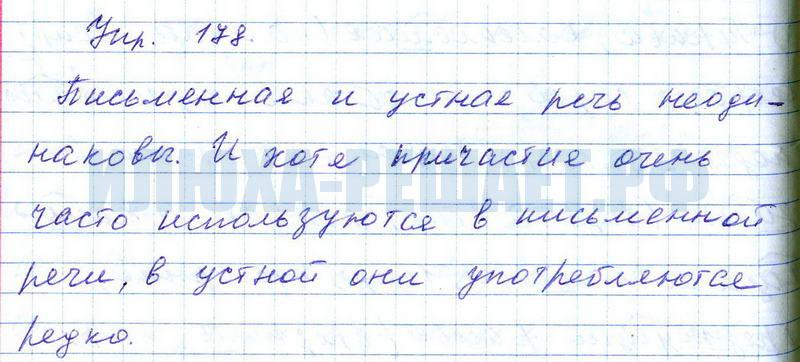 Упр. 178.
Письменная и устная речь неоди-
наковы. И хотя причастие очень
часто используются в письменной
речи, в устной они употребляются
редко.
ИЛЮХА-РЕШАЕТ.РФ